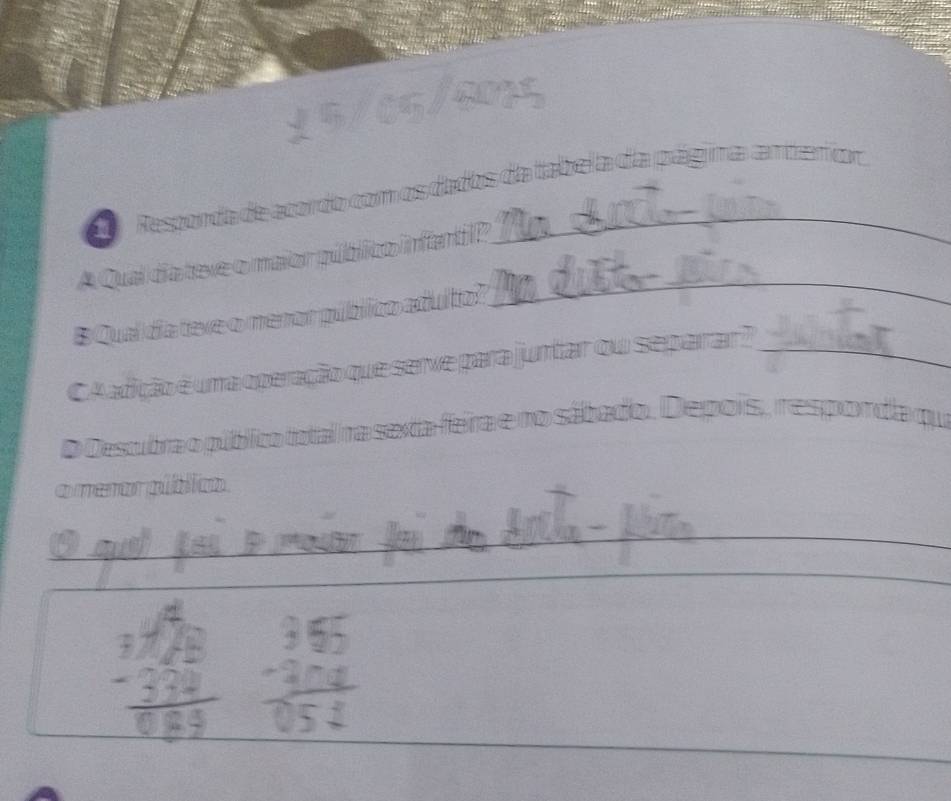 15/05/2025
1 Responda de acordo com os dados da tabela da página anterior.
A Qual dia teve o maior público infantil? Na sexta-feira
B Qual dia teve o menor público adulto? Na sexta-feira
C A adição é uma operação que serve para juntar ou separar? juntar
D Descubra o público total na sexta-feira e no sábado. Depois, responda
o menor público.
foi foi sexta-feira
355
-334 -304
089 051